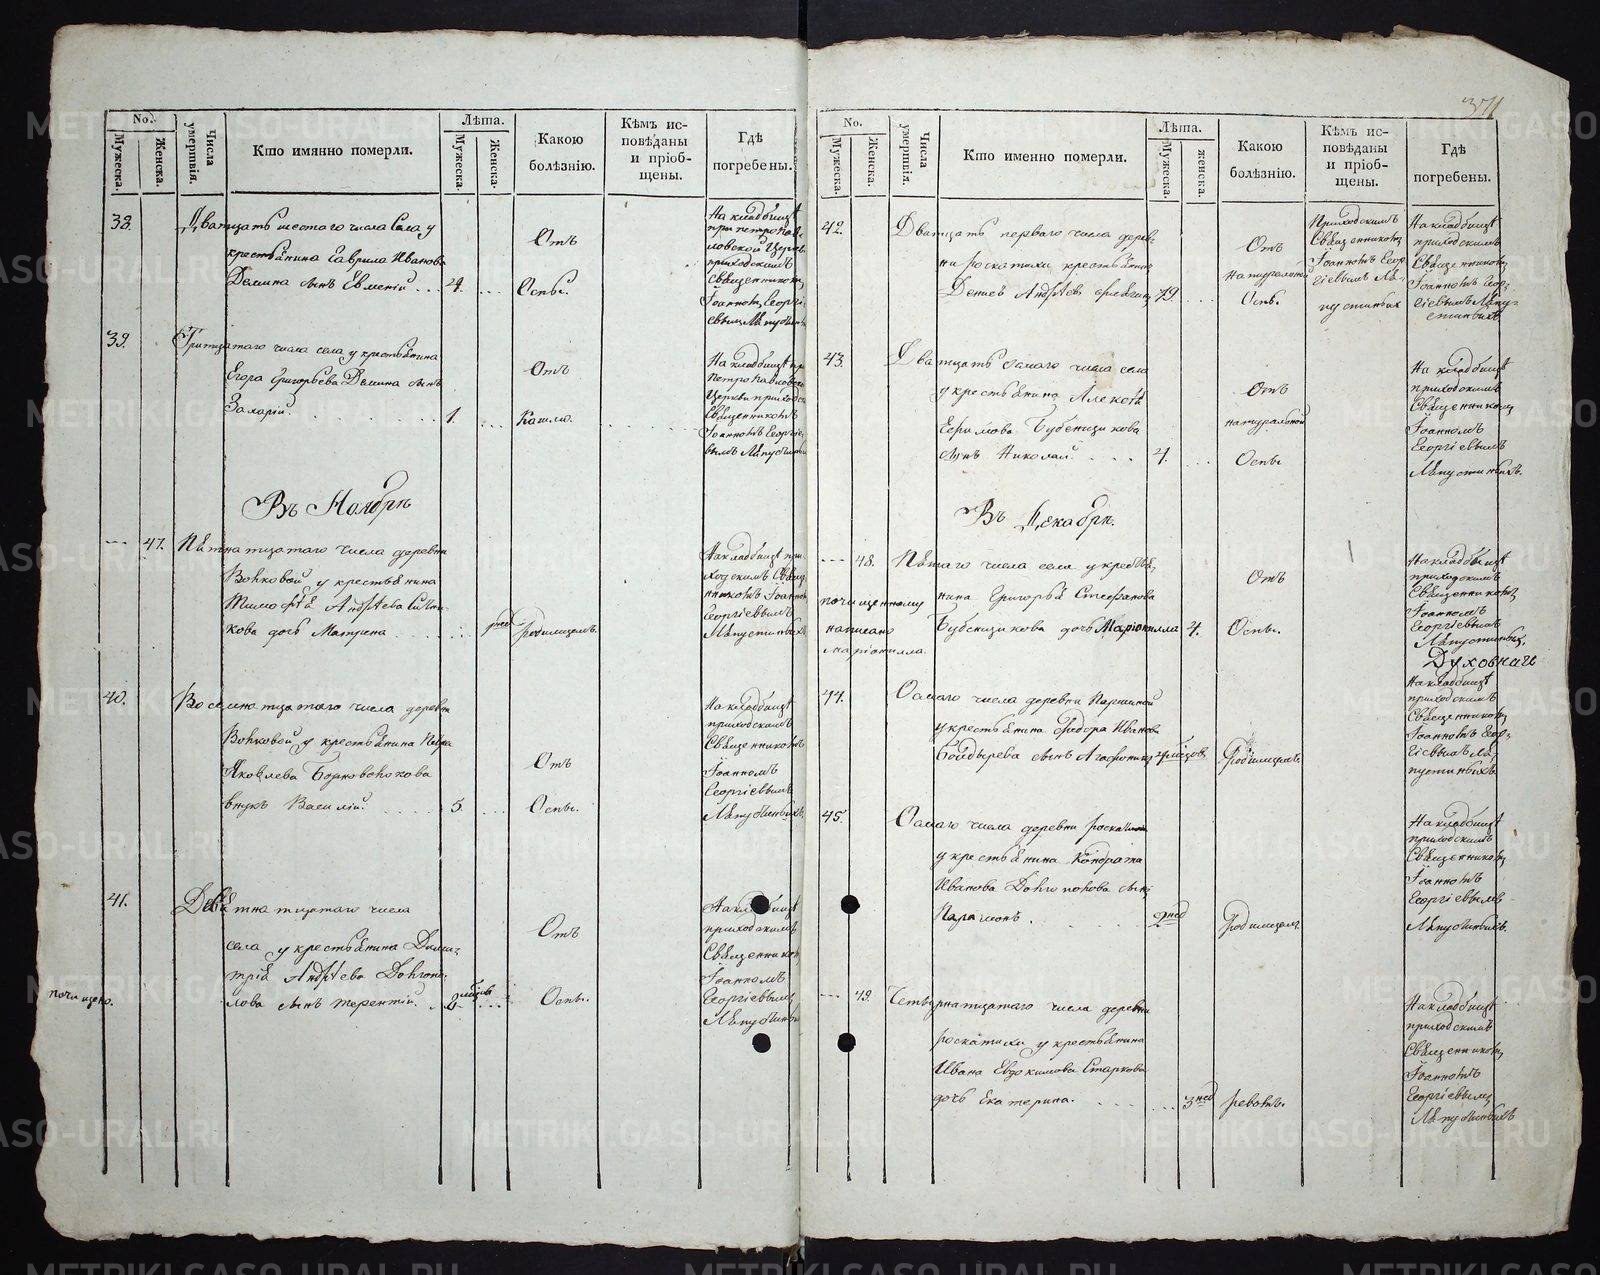 No.
Мужеска.
Женска.
Числа умертвія.
Кто имянно померли.
Лѣта.
Мужеска.
Женска.
Какою
болѣзнію.
Кѣмъ ис-
повѣданы
и пріоб-
щены.
Гдѣ
погребены.
38.
Дватцать шестого числа села у
крестьянина Гаврила Иванова
Демина сынъ Евмений
Отъ
Оспы.
На кладбищѣ
при петропав-
ловской Церкв
приходскимъ
Священникомъ
Іоанномъ Георгі-
евымъ
39.
Тритцатаго числа села у крестьянина
Егора Григорьева Демина сынъ
Захарій.
1.
Отъ
Кашлю.
На кладбищѣ при
петропавловской
Церкви приходс
Священникомъ
Іоанномъ Георгіе-
вымъ
Въ Ноябрѣ
47.
Пятнатцатаго числа деревни
Волковой у крестьянина
Тимофея Андрѣева
кова дочь Матрена
родимцемъ.
На кладбищѣ при-
ходскимъ Священ
никомъ Іоанномъ
Георгіевымъ
40.
Восемнатцатаго числа деревни
Волковой у крестьянина Петра
Яковлева
внукъ Василій.
5
Отъ
Оспы.
На кладбищѣ
приходскимъ
Священникомъ
Іоанномъ
Георгіевымъ
41.
Девятнатцатаго числа
села у крестьянина Дими-
трія Андрѣева Долгопо-
лова сынъ терентій.
почищено.
2
Отъ
Оспы.
На кладбищѣ
приходскимъ
Священникомъ
Іоанномъ
Георгіевымъ
371
No.
Мужеска.
Женска.
Числа умертвія.
Кто именно померли.
Лѣта.
Мужеска.
женска.
Какою
болѣзнію.
Кѣмъ ис-
повѣданы
и пріоб-
щены.
Гдѣ
погребены.
42.
Дватцать перваго числа дерев-
ни роскатихи крестьянинъ
Денисъ Андрѣевъ
79.
Отъ
натуральной
Оспы.
Приходскимъ
Священникомъ
Іоанномъ Геор-
гіевымъ
На кладбищѣ
приходскимъ
Священникомъ
Іоанномъ Геор-
гіевымъ
43.
Дватцать осмаго числа села
у крестьянина Алексѣя
Ефимова Бубенщикова
сынъ Николай.
4.
Отъ
натуральной
Оспы.
На кладбищѣ
приходскимъ
Священникомъ
Іоанномъ
Георгіевымъ
Въ Декабрѣ.
48.
Пятаго числа села у крестья-
нина Григорья Стефанова
Бубенщикова дочь Маріонилла
почищенному
написано
маріонилла.
4.
Отъ
Оспы.
На кладбищѣ
приходскимъ
Священникомъ
Іоанномъ
Георгіевымъ
44.
Осмаго числа деревни
у крестьянина Федора Иванова
Болдырева сынъ
родимцемъ.
На кладбищѣ
приходскимъ
Священникомъ
Іоанномъ Геор-
гіевымъ
45.
Осмаго числа деревни роскатихи
у крестьянина Кондрата
Иванова Долгополова сынъ
Парамонъ.
2 нед
родимцемъ
На кладбищѣ
приходскимъ
Священникомъ
Іоанномъ
Георгіевымъ
49.
Четырнатцатаго числа деревни
роскатихи у крестьянина
Ивана Евдокимова Старкова
дочь Екатерина.
3 нед
ревомъ.
На кладбищѣ
приходскимъ
Священникомъ
Іоанномъ
Георгіевымъ
METRIKI.GASO-URAL.RU